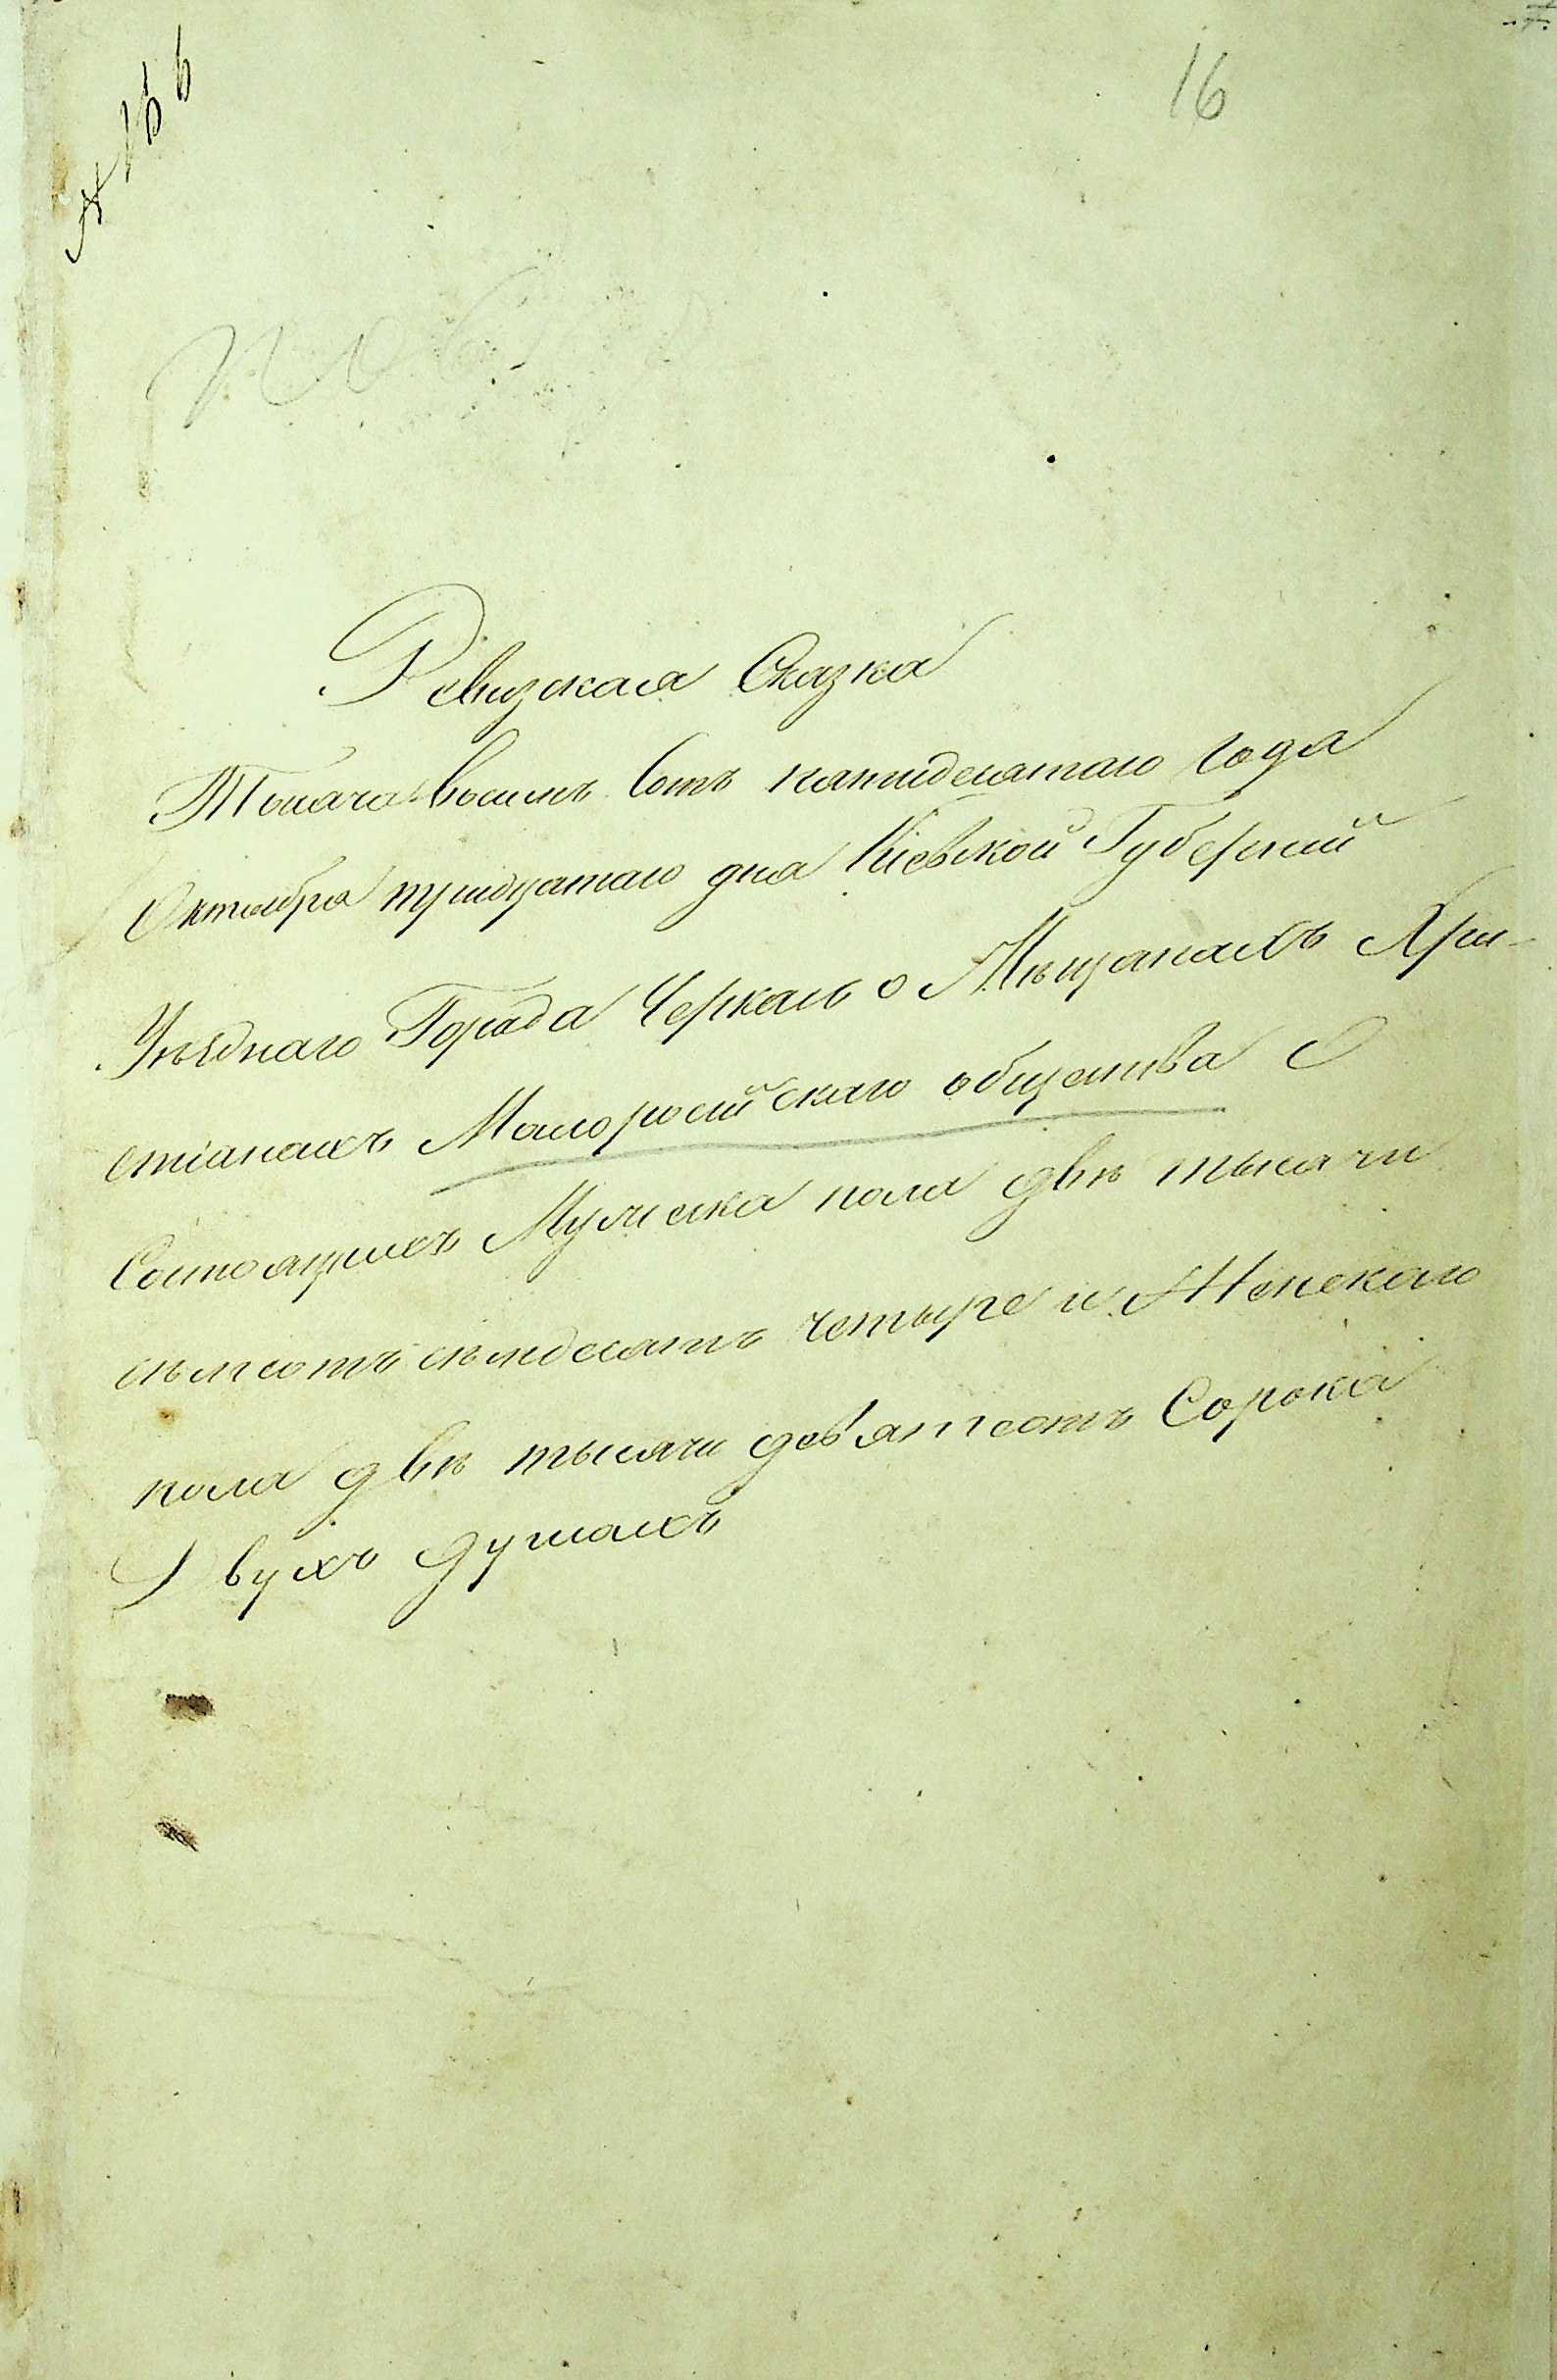 № 166
16
Ревизская Сказка
Тысяча восемь Сотъ пятидесятаго года
Октября тридцатаго дня Кіевской Губерній
Уѣзднаго Города Черкасъ о Мѣщанахъ Хри-
стіанахъ Малоросійскаго общества О
Состоящихъ Мужеска пола двѣ тысячи
сѣмсотъ сѣмдесятъ четыре и Женскаго
пола двѣ тысячи девятсотъ Сорока
Двухъ душахъ